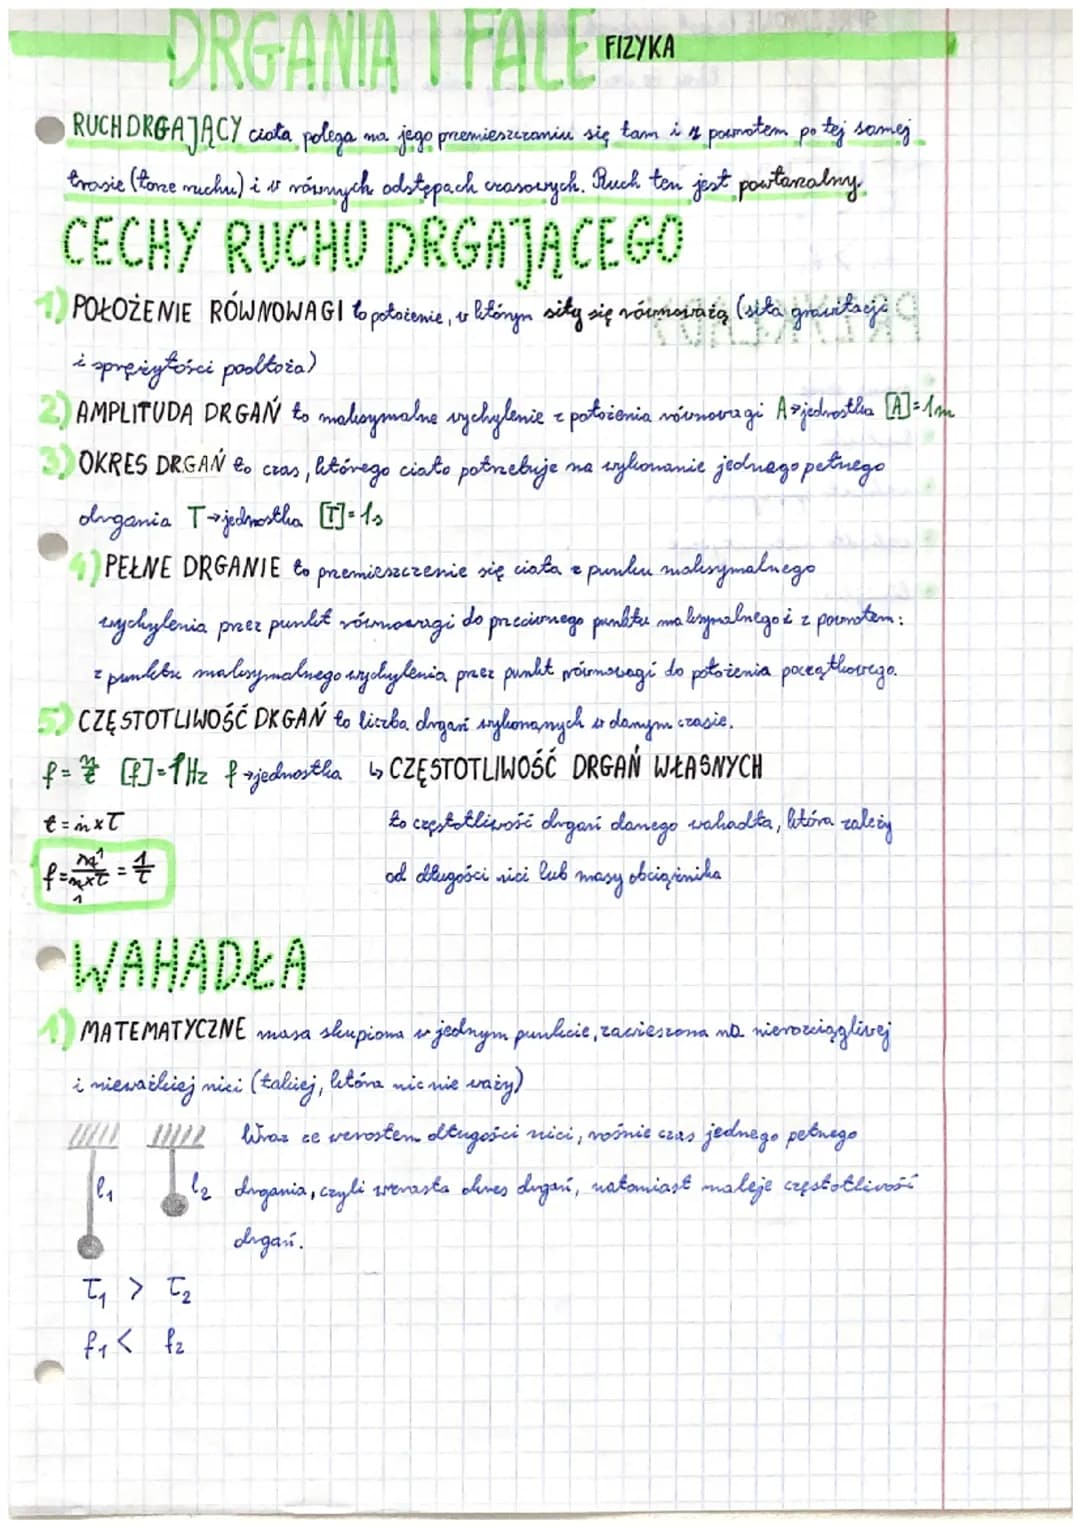 DRGANIA I FALE FIZYKA
RUCH DRGAJĄCY ciała polega na jego przemieszczaniu się tam i z powrotem po tej samej
trasie (torze ruchu) i w równych odstępach czasowych. Ruch ten jest powtarzalny.
CECHY RUCHU DRGAJĄCEGO
1) POŁOŻENIE RÓWNOWAGI to położenie, w którym siły się równoważą (siła grawitacji
i sprężytości podłoża)
2) AMPLITUDA DRGAŃ to maksymalne wychylenie z położenia równowagi A→jednostka [A]=1m
3) OKRES DRGAŃ to czas, którego ciało potrzebuje na wykonanie jednego pełnego
drgania T→jednostka [T]=1s
4) PEŁNE DRGANIE to przemieszczenie się ciała z punku maksymalnego
wychylenia przez punkt równowagi do przeciwnego punktu maksymalnego i z powrotem:
z punktu maksymalnego wychylenia przez punkt równowagi do położenia początkowego.
5) CZĘSTOTLIWOŚĆ DRGAŃ to liczba drgań wykonanych w danym czasie.
f=n/t [f]=1Hz f→jednostka ↳ CZĘSTOTLIWOŚĆ DRGAŃ WŁASNYCH
t=n×T to częstotliwość drgań danego wahadła, która zależy
f=n¹/n×T₁=1/T od długości nici lub masy obciążnika
WAHADŁA
1) MATEMATYCZNE masa skupiona w jednym punkcie, zawieszona na nierozciągliwej
i nieważkiej nici (takiej, która nic nie waży)
Wraz ze wzrostem długości nici, rośnie czas jednego pełnego
l₁ l₂ drgania, czyli wzrasta okres drgań, natomiast maleje częstotliwość
drgań.
T₁ > T₂
f₁ < f₂